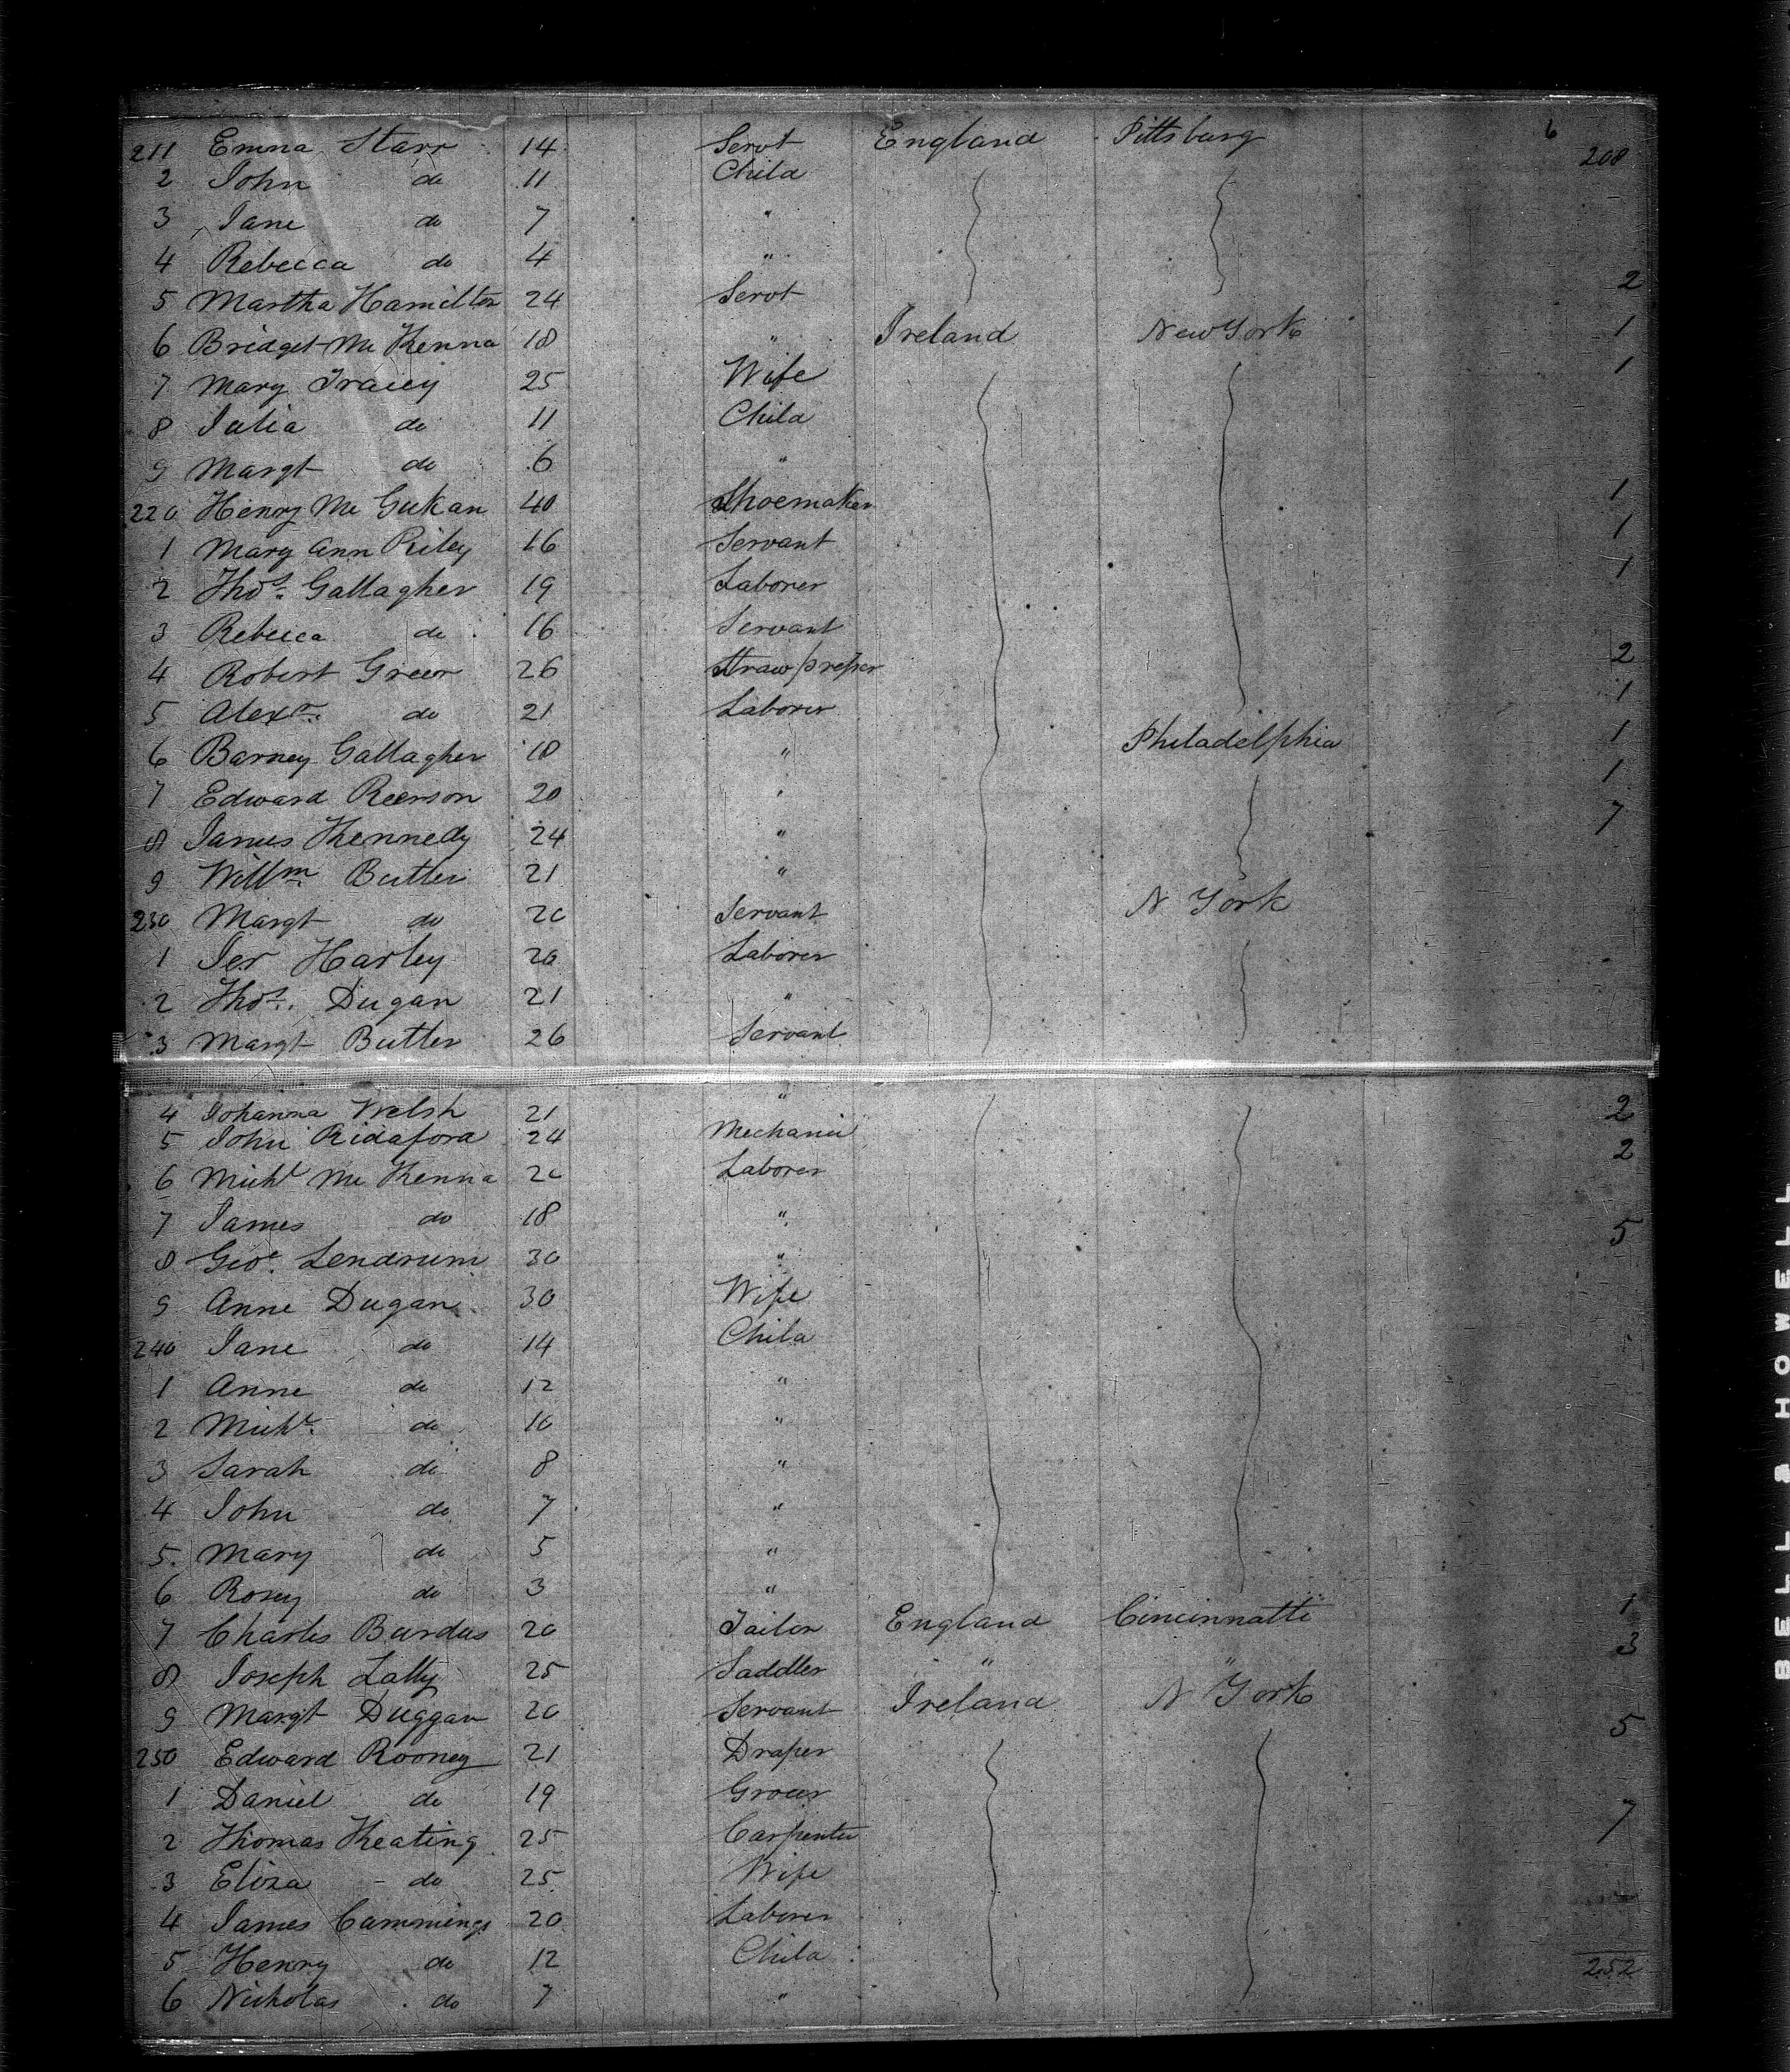 6
211 Emma Starr 14 Servt England Pittsburg 208
2 John do 11 Child
3 Jane do 7 "
4 Rebecca do 4 "
5 Martha Hamilton 24 Servt 2
6 Bridget Mc Kenna 18 " Ireland New York 1
7 Mary Tracey 25 Wife 1
8 Julia do 11 Child
9 Margt do 6 "
220 Henry Mc Gukan 40 Shoemaker 1
1 Mary Ann Riley 16 Servant 1
2 Thos. Gallagher 19 Laborer 1
3 Rebecca do 16 Servant
4 Robert Greer 26 Straw presser 2
5 Alexr. do 21 Laborer 1
6 Barney Gallagher 18 " Philadelphia 1
7 Edward Reerson 20 " 1
8 James Kennedy 24 " 7
9 Willm Butler 21 "
230 Margt do 20 Servant N York
1 Jer Harley 20 Laborer
2 Thos. Dugan 21 "
3 Margt Butler 26 Servant
4 Johanna Welsh 21 " 2
5 John Ridafora 24 Mechanic 2
6 Michl Mc Kenna 20 Laborer
7 James do 18 " 5
8 Geo. Lendrum 30 "
9 Anne Dugan 30 Wife
240 Jane do 14 Child
1 Anne do 12 "
2 Michl. do 10 "
3 Sarah do 8 "
4 John do 7 "
5 Mary do 5 "
6 Rosey do 3 "
7 Charles Burdus 20 Tailor England Cincinnatti 1
8 Joseph Lally 25 Saddler " " 3
9 Margt Duggan 20 Servant Ireland N York
250 Edward Rooney 21 Draper 5
1 Daniel do 19 Grocer
2 Thomas Keating 25 Carpenter 7
3 Eliza do 25 Wife
4 James Cammings 20 Laborer
5 Henry do 12 Child 252
6 Nicholas do 7 "
BELL & HOWELL